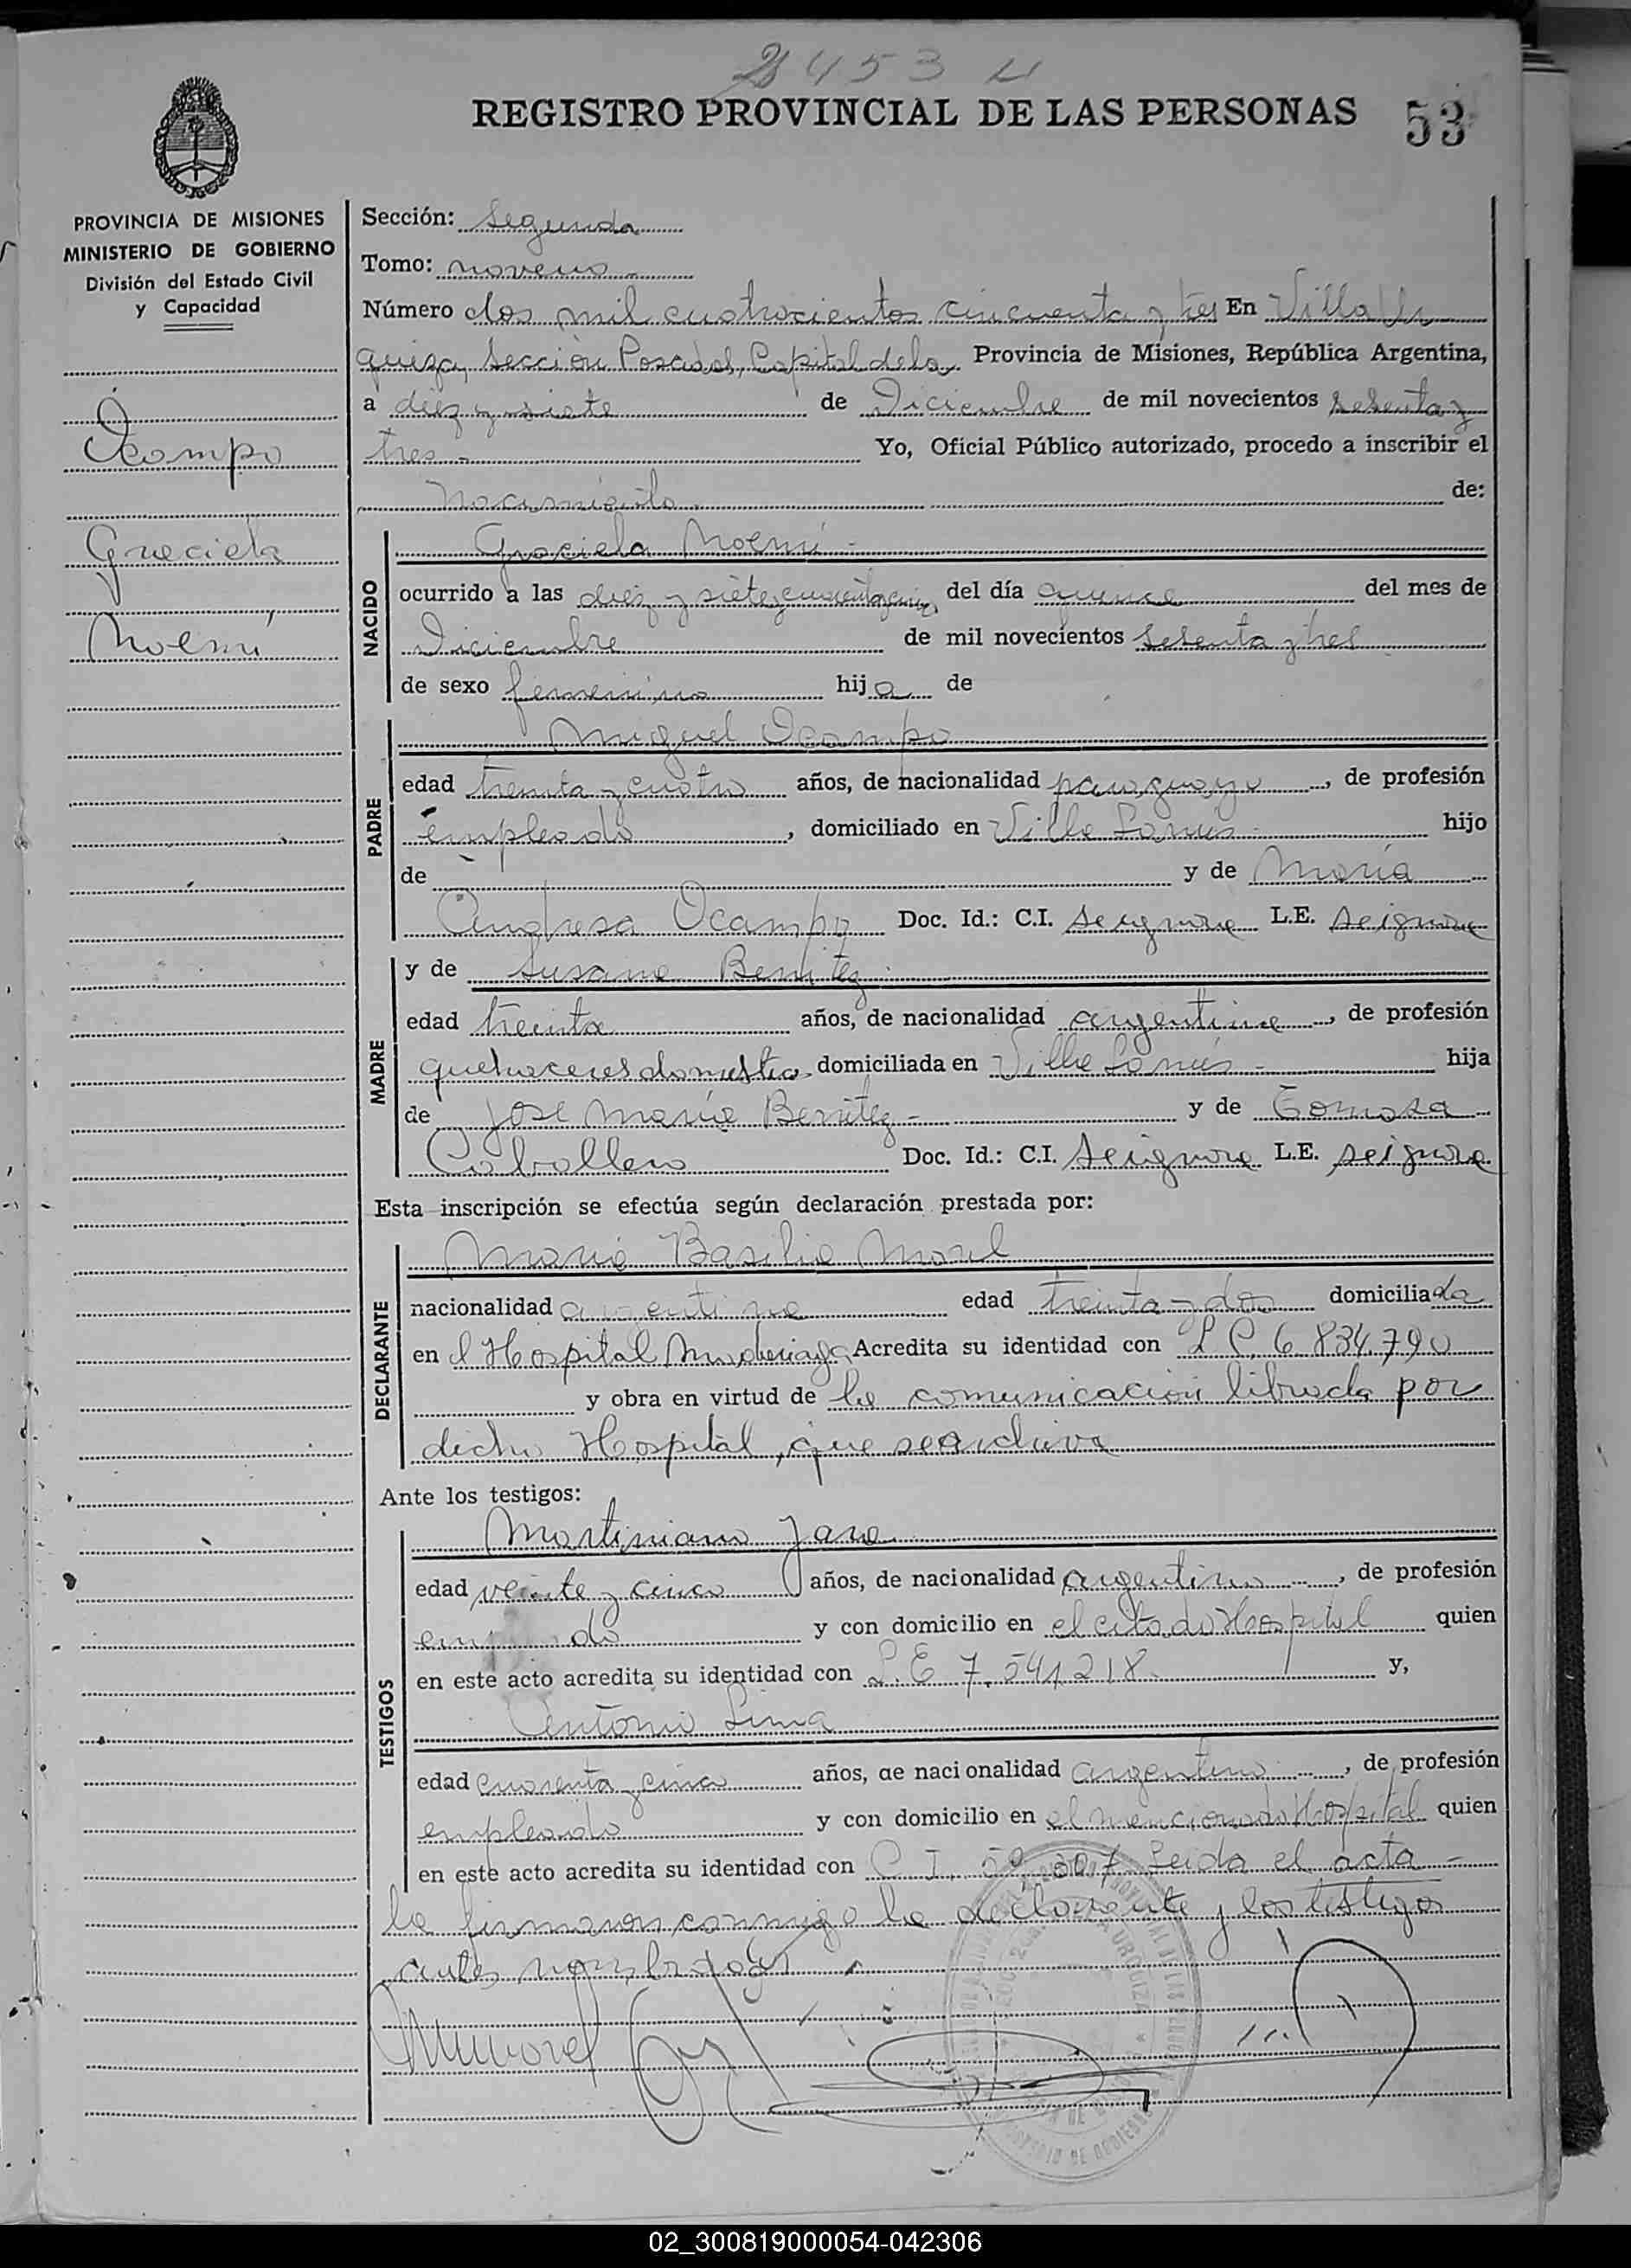 2453
REGISTRO PROVINCIAL DE LAS PERSONAS 53
PROVINCIA DE MISIONES
MINISTERIO DE GOBIERNO
División del Estado Civil
y Capacidad
Ocampo
Graciela
Noemí
Sección: Segunda
Tomo: noveno
Número dos mil cuatrocientos cincuenta y tres En Villa Ur
quiza, Sección Posadas, Capital de la Provincia de Misiones, República Argentina,
a diez y siete de Diciembre de mil novecientos sesenta y
tres Yo, Oficial Público autorizado, procedo a inscribir el
Nacimiento de:
NACIDO
Graciela Noemí
ocurrido a las diez y siete y cuarenta y cinco del día quince del mes de
Diciembre de mil novecientos sesenta y tres
de sexo femenino hija de
PADRE
Miguel Ocampo
edad treinta y cuatro años, de nacionalidad paraguayo, de profesión
empleado, domiciliado en Villa Lanús hijo
de y de María
Ocampo Doc. Id.: C.I. se ignora L.E. se ignora
MADRE
y de Susana Benitez
edad treinta años, de nacionalidad argentina, de profesión
quehaceres domestico domiciliada en Villa Lanús hija
de José María Benitez y de Tomasa
Caballero Doc. Id.: C.I. Se ignora L.E. se ignora
Esta inscripción se efectúa según declaración prestada por:
DECLARANTE
María Basilia Morel
nacionalidad argentina edad treinta y dos domiciliada
en el Hospital Madariaga Acredita su identidad con L C 6 834.790
y obra en virtud de la comunicación librada por
dicho Hospital, que se archiva
Ante los testigos:
TESTIGOS
Martiniano Jara
edad veinte y cinco años, de nacionalidad argentino, de profesión
empleado y con domicilio en el citado Hospital quien
en este acto acredita su identidad con L.E 7.541.218 y,
Antonio Lima
edad cuarenta y cinco años, de nacionalidad argentino, de profesión
empleado y con domicilio en el mencionado Hospital quien
en este acto acredita su identidad con C I. Leida el acta
la firmaron conmigo la declarante y los testigos
antes nombrados
MMorel
02_300819000054-042306